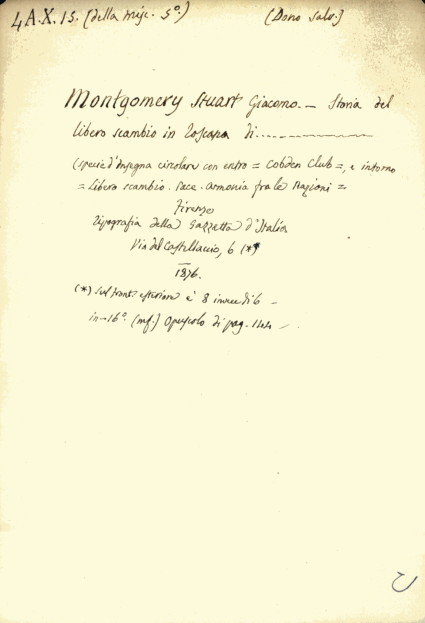 4 A.X. 15. (della misc. 5º.) (Dono Salv.)
Montgomery Stuart Giacomo. — Storia del
libero scambio in Toscana di..............
(specie d'insegna circolare con entro = Cobden Club =, e intorno
= Libero scambio. Pace. Armonia fra le Nazioni =
Firenze
Tipografia della Gazzetta d'Italia
Via del Castellaccio, 6 (*)
1876.
(*) Sul front. esteriore è 8 invece di 6 —
in-16º. (mf.) Opuscolo di pag. 144 —